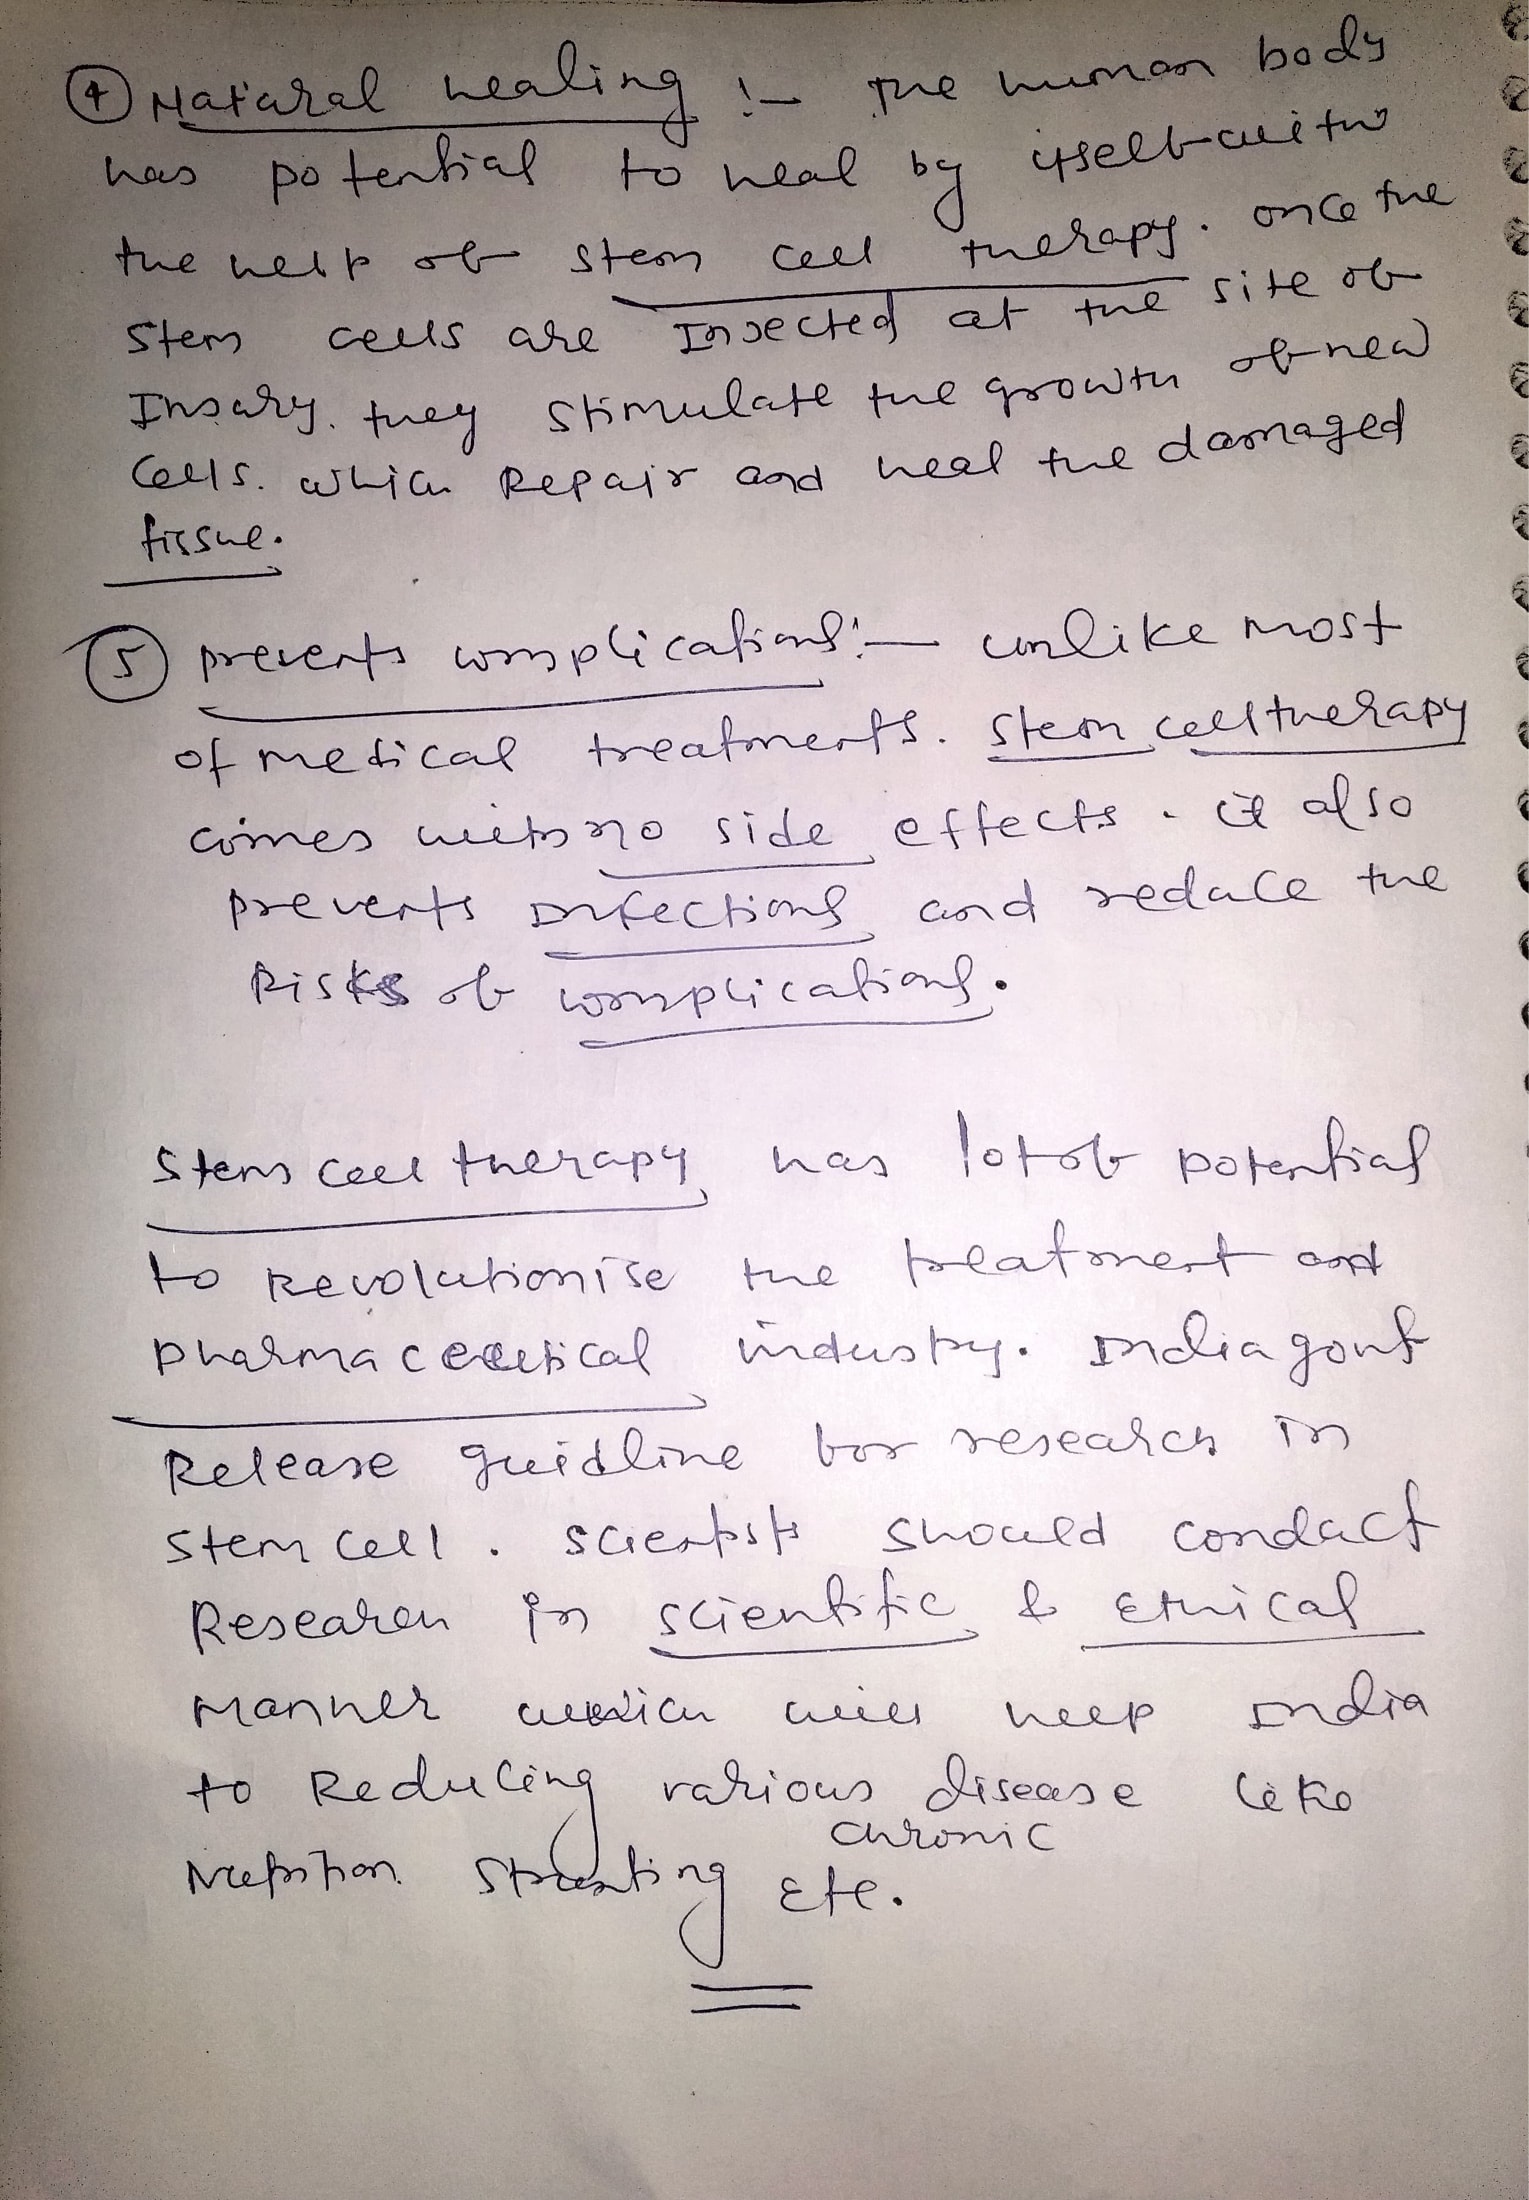 ④ Natural healing :- The human body
has potential to heal by itself with
the help of stem cell therapy. once the
stem cells are Injected at the site of
Injury. they stimulate the growth of new
cells. which Repair and heal the damaged
tissue.
⑤ prevents complications :- unlike most
of medical treatments. stem cell therapy
comes with no side effects. it also
prevents infections and reduce the
Risks of complications.
Stem cell therapy has lot of potential
to Revolutionise the treatment and
pharmaceutical industry. India govt
Release guidline for research in
stem cell. scientists should conduct
Research in scientific & Ethical
manner which will help India
to Reducing various disease like
chronic
Nutrition stunting Etc.